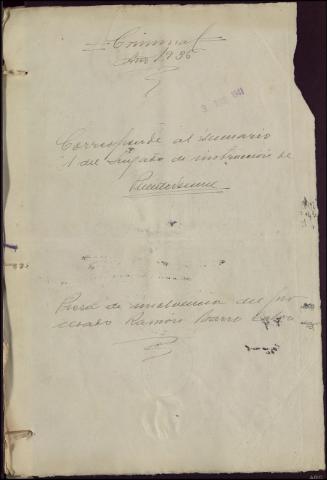 Criminal
Año 1936
1941
Corresponde al sumario
1 del Juzgado de instrucción de
Puentedeume
Pieza de insolvencia del pro
cesado Ramón Barro